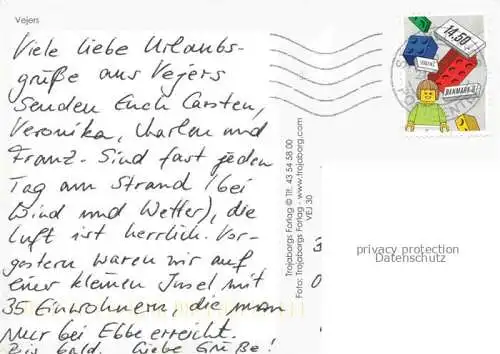 Vejers
Viele liebe Urlaubs-
grüße aus Vejers
senden Euch Carsten,
Veronika, Marlen und
Franz. Sind fast jeden
Tag am Strand (bei
Wind und Wetter), die
Luft ist herrlich. Vor-
gestern waren wir auf
einer kleinen Insel mit
35 Einwohnern, die man
nur bei Ebbe erreicht.
Bis bald. Liebe Grüße!
Trojaborgs Forlag © Tlf. 43 54 58 00
Foto: Trojaborgs Forlag - www.trojaborg.com
VEJ 30
14.50
DANMARK
privacy protection
Datenschutz